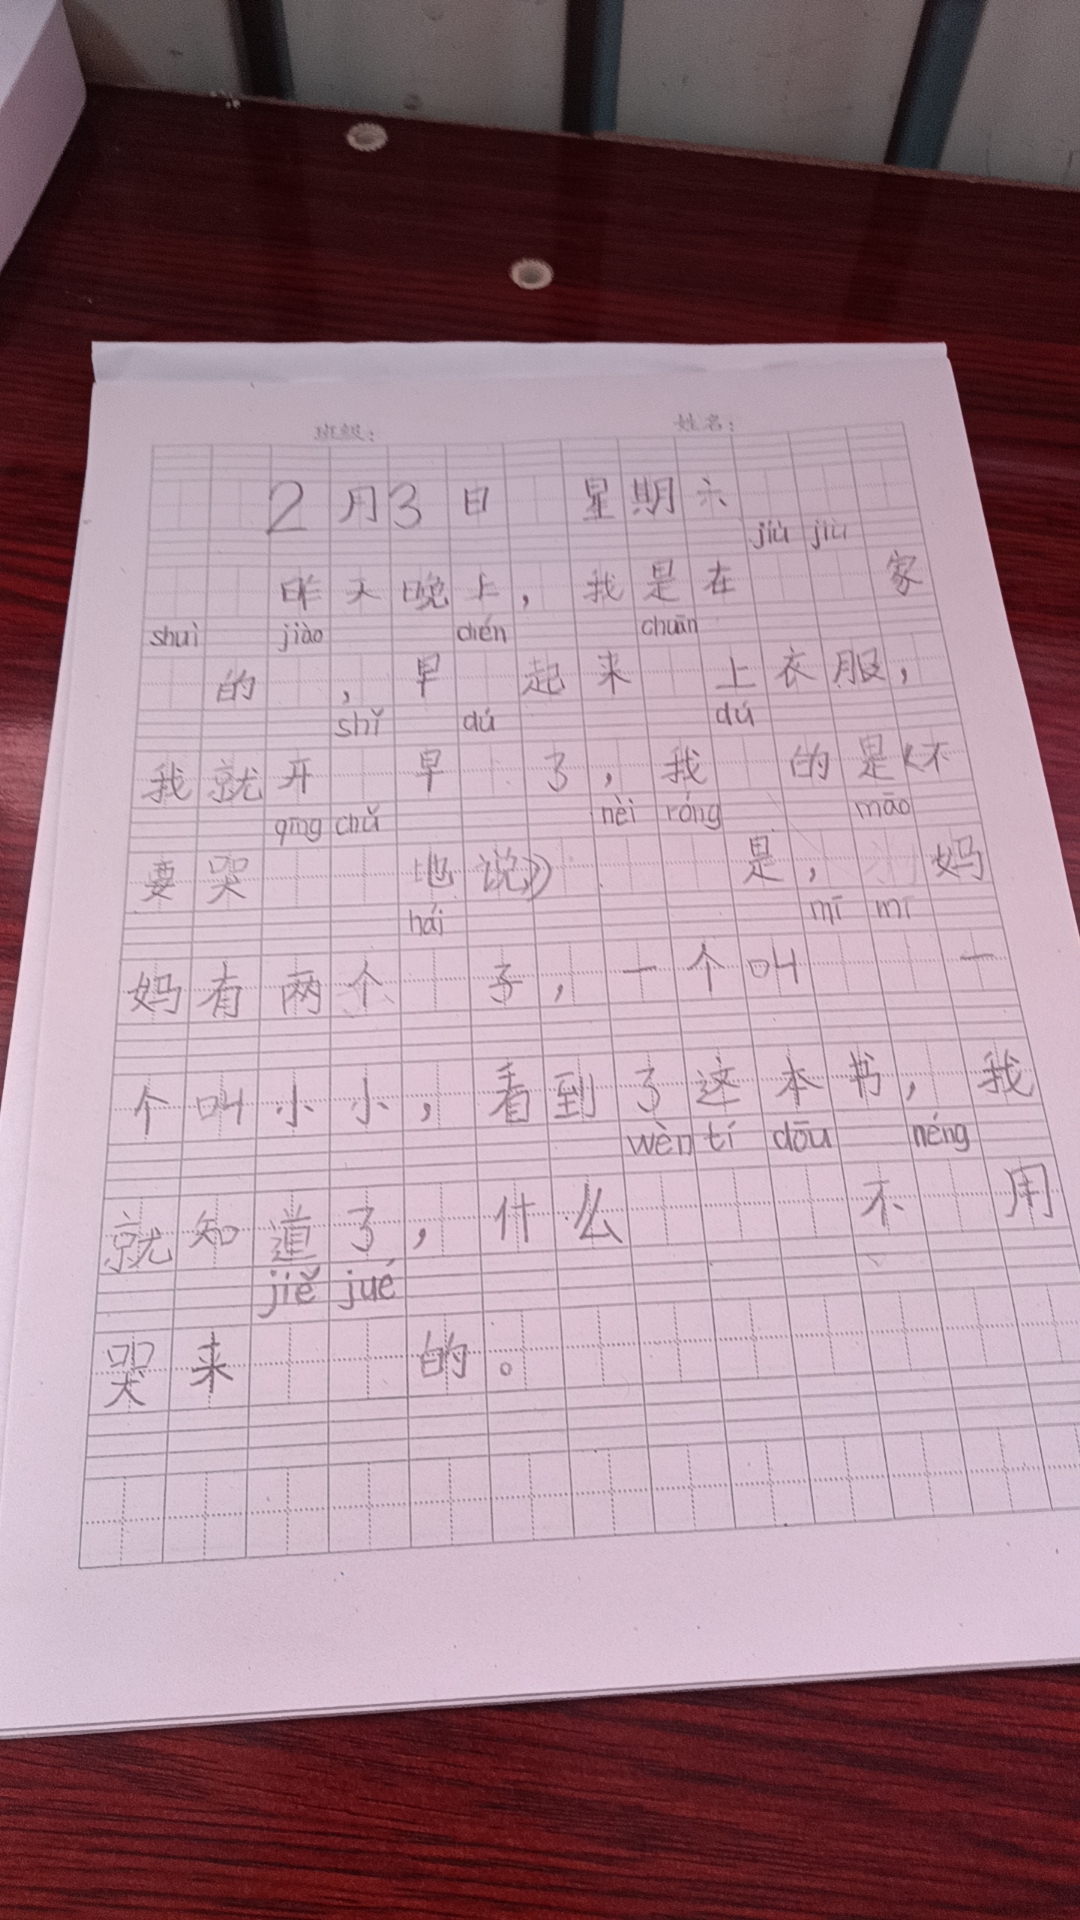 班级： 姓名：
2月3日 星期六
jiù jiu
昨天晚上，我是在 家
shuì jiào chén chuān
的 ，早 起来 上衣服，
shǐ dú dú
我就开 早 了，我 的是《不
qīng chǔ nèi róng māo
要哭 地说》 是，妈
hái mī mī
妈有两个 子，一个叫 一
个叫小小，看到了这本书，我
wèn tí dōu néng
就知道了，什么 不 用
jiě jué
哭来 的。